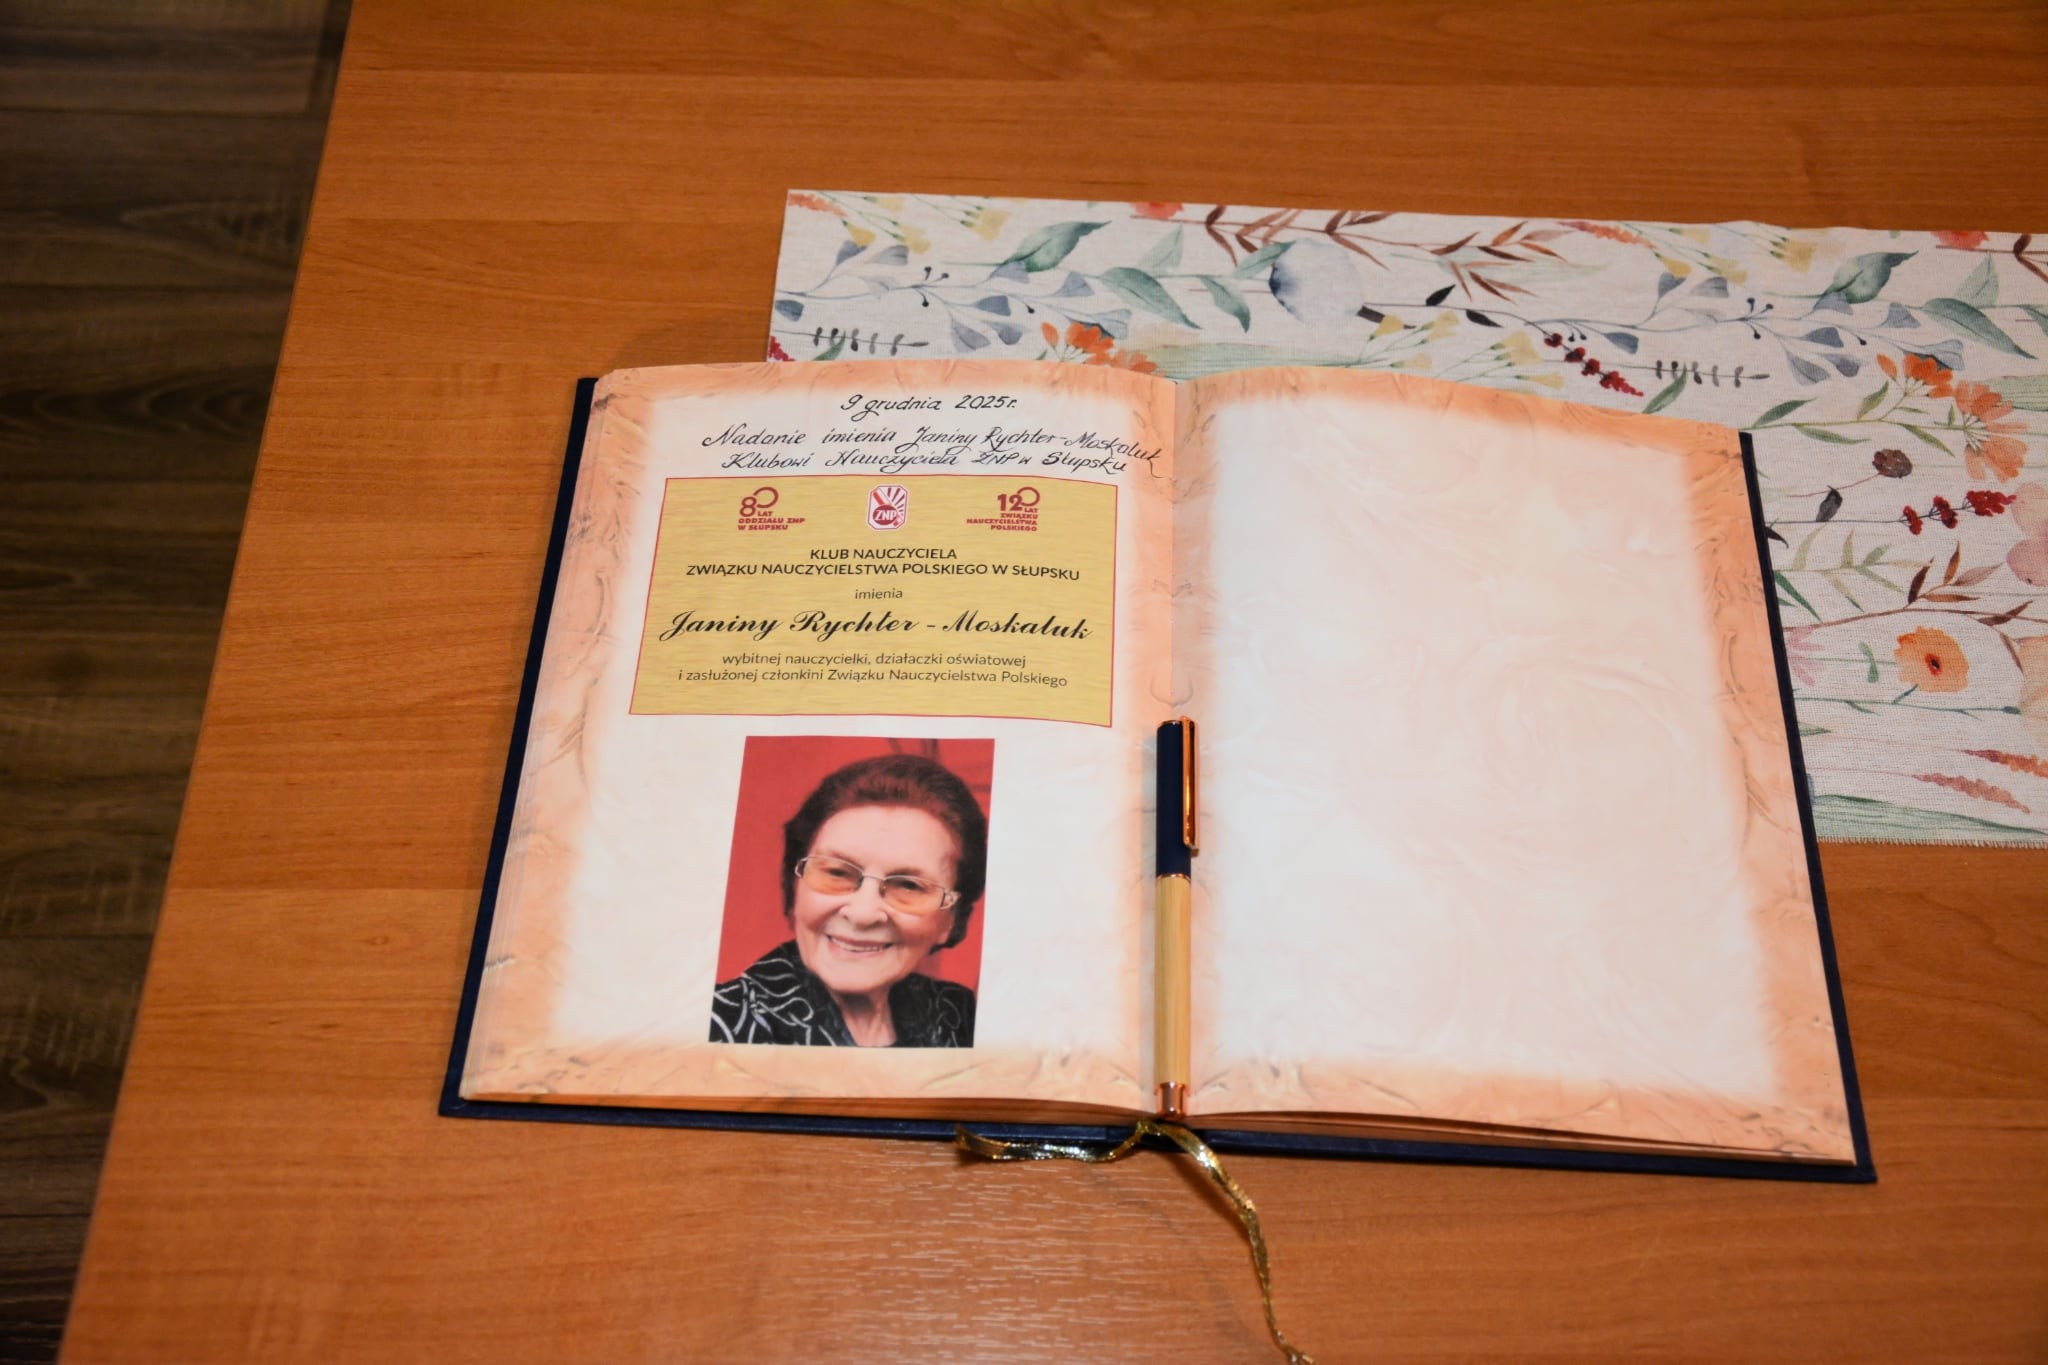 9 grudnia 2025r.
Nadanie imienia Janiny Rychter-Moskaluk
Klubowi Nauczyciela ZNP w Słupsku
80 LAT
ODDZIAŁU ZNP
W SŁUPSKU
ZNP
120 LAT
ZWIĄZKU
NAUCZYCIELSTWA
POLSKIEGO
KLUB NAUCZYCIELA
ZWIĄZKU NAUCZYCIELSTWA POLSKIEGO W SŁUPSKU
imienia
Janiny Rychter - Moskaluk
wybitnej nauczycielki, działaczki oświatowej
i zasłużonej członkini Związku Nauczycielstwa Polskiego